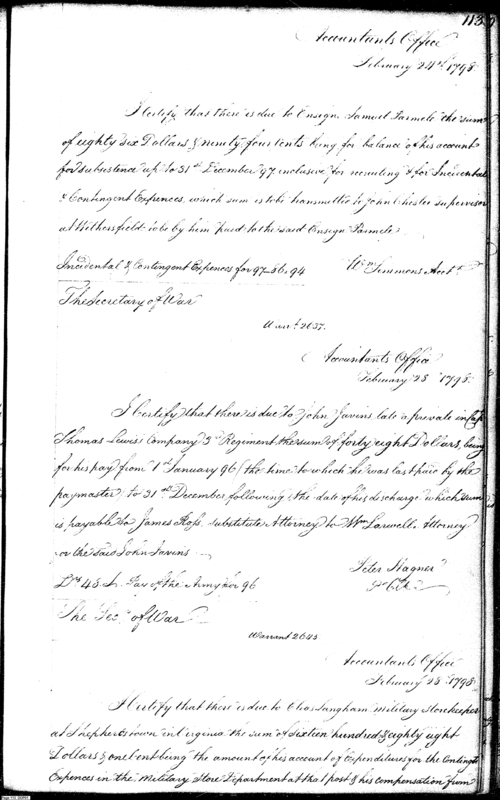 113
Accountants Office
February 24th 1798.
I Certify that there is due to Ensign Samuel Parmele the sum
of eighty six Dollars & ninety four Cents being for balance of his account
for subsistence up to 31st December 97 inclusive, for recruiting & for Incidental
& Contingent Expences, which sum is to be transmitted to John Chester supervisor
at Withersfield to be by him paid to the said Ensign Parmele
Incidental & Contingent Expences for 97. 86.94
Wm Simmons Acct
The Secretary of War
Warrt 2637.
Accountants Office
February 28 1798.
I Certify that there is due to John Javins late a private in Cap
Thomas Lewis Company 3d Regiment the sum of forty eight Dollars, being
for his pay from 1st January 96 (the time to which he was last paid by the
paymaster) to 31st December following, the date of his discharge which sum
is payable to James Ross, substitute Attorney to Wm Attorney
for the said John Javins
Peter Hagner
Drs 48 Pay of the Army for 96
P Clk
The Secy of War
Warrant 2643
Accountants Office
February 28 1798
I Certify that there is due to Elias Langham Military Storekeeper
at Shepherds town in Virginia the sum of Sixteen hundred & eighty eight
Dollars & one Cent being the amount of his account of Expenditures for the Contingt
Expences in the Military Store Department at that post & his compensation from